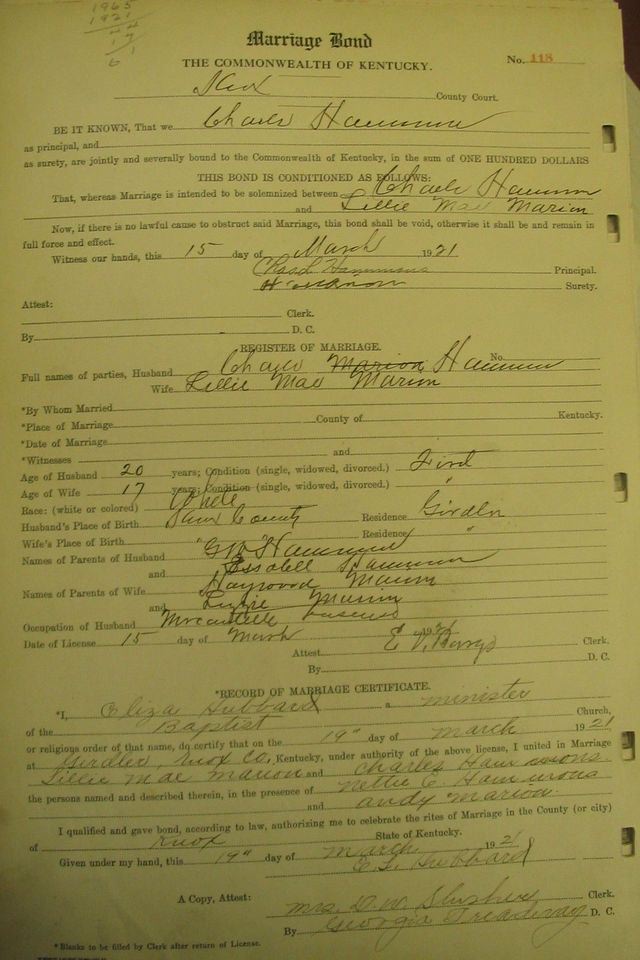 1965
1921
44
17
61
Marriage Bond
THE COMMONWEALTH OF KENTUCKY.
No. 118
Knox County Court.
BE IT KNOWN, That we Charle Hammon
as principal, and
as surety, are jointly and severally bound to the Commonwealth of Kentucky, in the sum of ONE HUNDRED DOLLARS
THIS BOND IS CONDITIONED AS FOLLOWS:
That, whereas Marriage is intended to be solemnized between Charle Hammon
and Lillie Mae Marion
Now, if there is no lawful cause to obstruct said Marriage, this bond shall be void, otherwise it shall be and remain in
full force and effect.
Witness our hands, this 15 day of March 1921
Chas L Hammons Principal.
Marion Surety.
Attest:
Clerk.
By D. C.
REGISTER OF MARRIAGE.
No.
Full names of parties, Husband Charle Marion Hammon
Wife Lillie Mae Marion
*By Whom Married
*Place of Marriage County of Kentucky.
*Date of Marriage
*Witnesses and
Age of Husband 20 years; Condition (single, widowed, divorced.) First
Age of Wife 17 years; Condition (single, widowed, divorced.) "
Race: (white or colored) White
Husband's Place of Birth Knox County Residence Girdler
Wife's Place of Birth " " Residence "
Names of Parents of Husband G W Hammon
and Hammon
Names of Parents of Wife Haywood Marion
and Lizzie Marion
Occupation of Husband Mercantile business
Date of License 15 day of March 1921
Attest Clerk.
By D. C.
*RECORD OF MARRIAGE CERTIFICATE.
*I, Eliza Hubbard a minister
of the Baptist Church,
or religious order of that name, do certify that on the 19" day of march 1921
at Girdler, Knox Co, Kentucky, under authority of the above license, I united in Marriage
Lillie Mae Marion and Charles Hammons.
the persons named and described therein, in the presence of Nettie E. Hammons
and Andy Marion.
I qualified and gave bond, according to law, authorizing me to celebrate the rites of Marriage in the County (or city)
of Knox State of Kentucky.
Given under my hand, this 19" day of March 1921
E. L. Hubbard
A Copy, Attest: Mrs. D. W. Slusher Clerk.
By Georgia Treadway D. C.
*Blanks to be filled by Clerk after return of License.